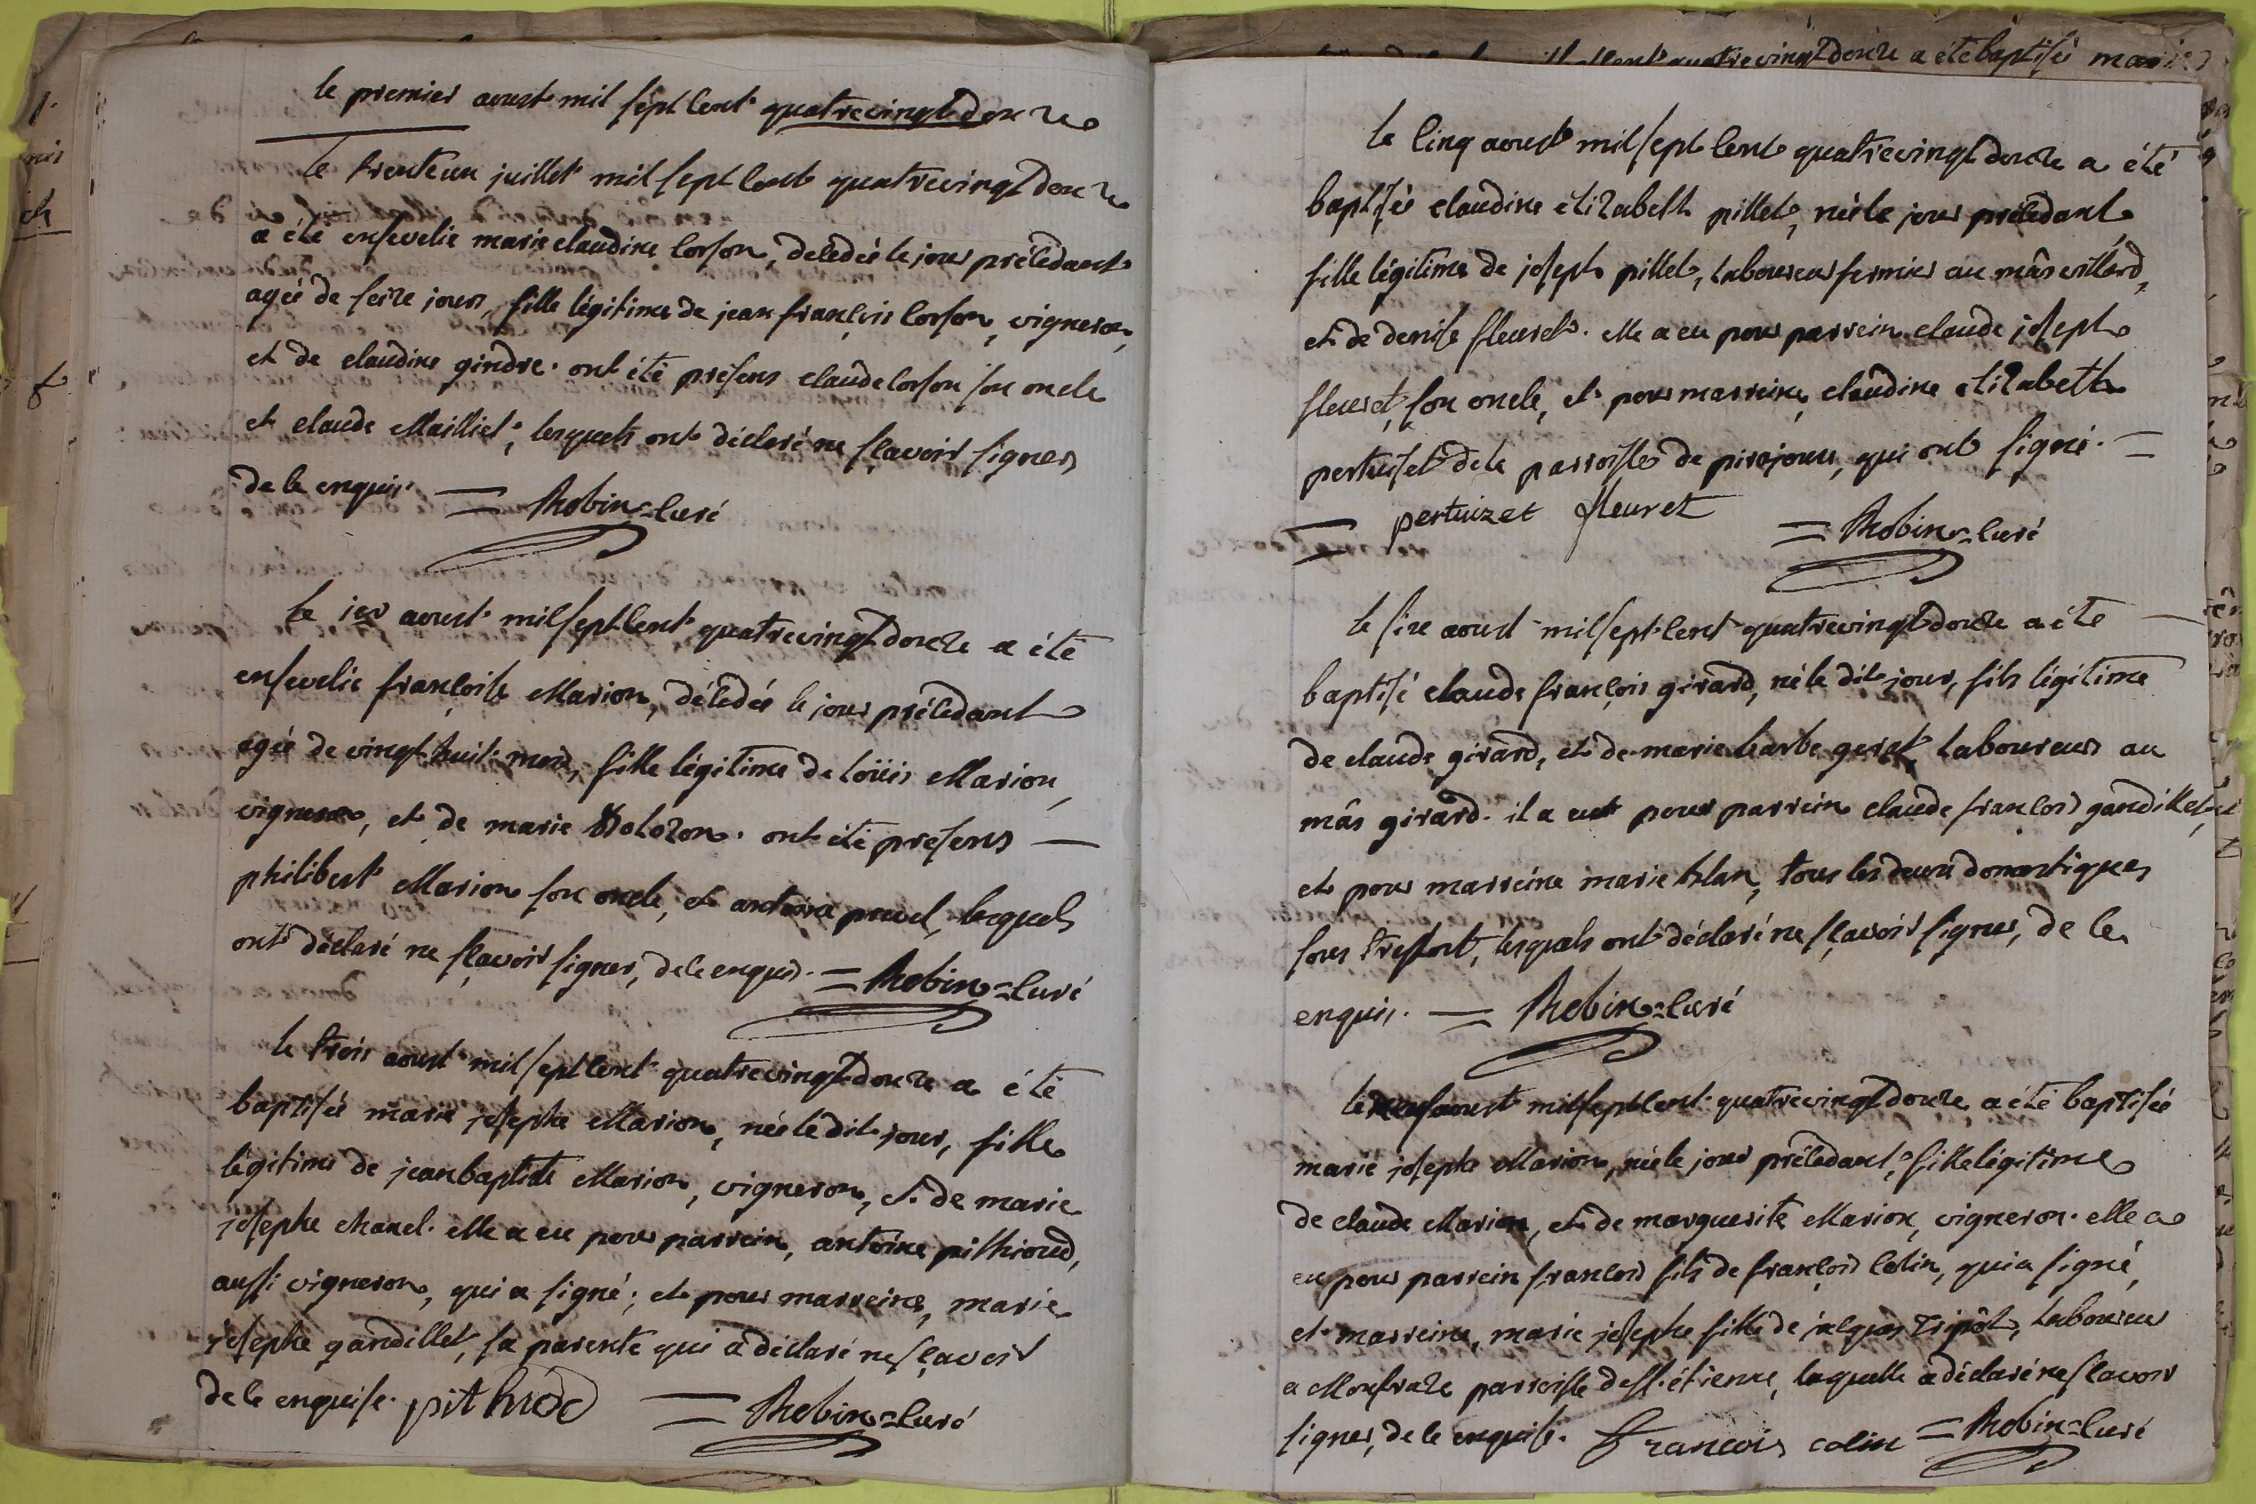 le premier aoust mil sept cent quatrevingt douze
Le trente un juillet mil sept cent quatrevingt douze
a été ensevelie marie claudine corson, décédée le jour précédant
agée de seize jours, fille légitime de jean françois corson, vigneron,
et de claudine gindre. ont été présens claude corson son oncle
et claude Mailliet, lesquels ont déclaré ne sçavoir signer
de ce enquis. = Robin=curé
le 1er aoust mil sept cent quatrevingt douze a été
ensevelie françoise Marion, décédée le jour précédant
agée de vingt huit mois, fille légitime de loüis Marion,
vigneron, et de marie Bolozon. ont été présens —
philibert Marion son oncle, et antoine lesquels
ont déclaré ne sçavoir signer, de ce enquis. = Robin=curé
le trois aoust mil sept cent quatrevingt douze a été
baptisée marie josephe Marion, née le dit jour, fille
légitime de jean baptiste Marion, vigneron, et de marie
josephe chanel. elle a eu pour parrein, antoine pithioud,
aussi vigneron, qui a signé; et pour marreine, marie
josephe gandillet, sa parente qui a déclaré ne sçavoir
de ce enquise. pithiod = Robin=curé
quatrevingt douze a été baptisée
le cinq aoust mil sept cent quatrevingt douze a été
baptisée claudine elizabeth pillet, née le jour précédant,
fille légitime de joseph pillet, laboureur fermier au mâs villard,
et de denise fleuret. elle a eu pour parrein claude joseph
fleuret, son oncle, et pour marreine, claudine elizabeth
pertuiset de la parroisse de pirajoux, qui ont signé. =
= pertuizet fleuret = Robin=curé
le six aoust mil sept cent quatrevingt douze a été —
baptisé claude françois girard, né le dit jour, fils légitime
de claude girard, et de marie barbe geret, laboureur au
mâs girard. il a eut pour parrein claude françois gandillet,
et pour marreine marie blan, tous les deux domestiques
sous tressort, lesquels ont déclaré ne sçavoir signer, de ce
enquis. = Robin=curé
le neuf aoust mil sept cent quatrevingt douze a été baptisée
marie josephe Marion, née le jour précédant, fille légitime
de claude Marion, et de marguerite Marion, vigneron. elle a
eu pour parrein françois fils de françois colin, qui a signé,
et marreine, marie josephe fille de jacques tripôt, laboureur
a Monfraze parroisse de St. étienne, laquelle a déclaré ne sçavoir
signer, de ce enquise. françois colin = Robin=curé